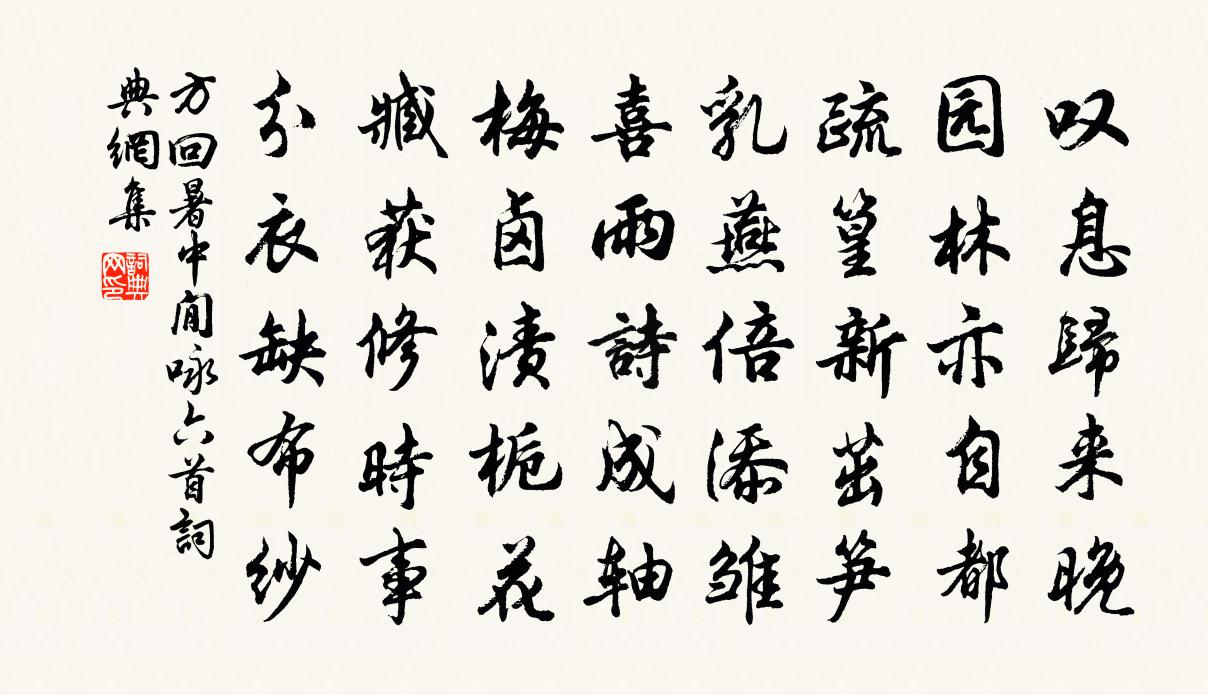 叹息歸来晚
园林亦自都
疏篁新茁笋
乳燕倍添雏
喜雨詩成轴
梅卤渍栀花
臧获修時事
分衣缺布纱
方回暑中閒咏六首詞
典網集
詞典网印